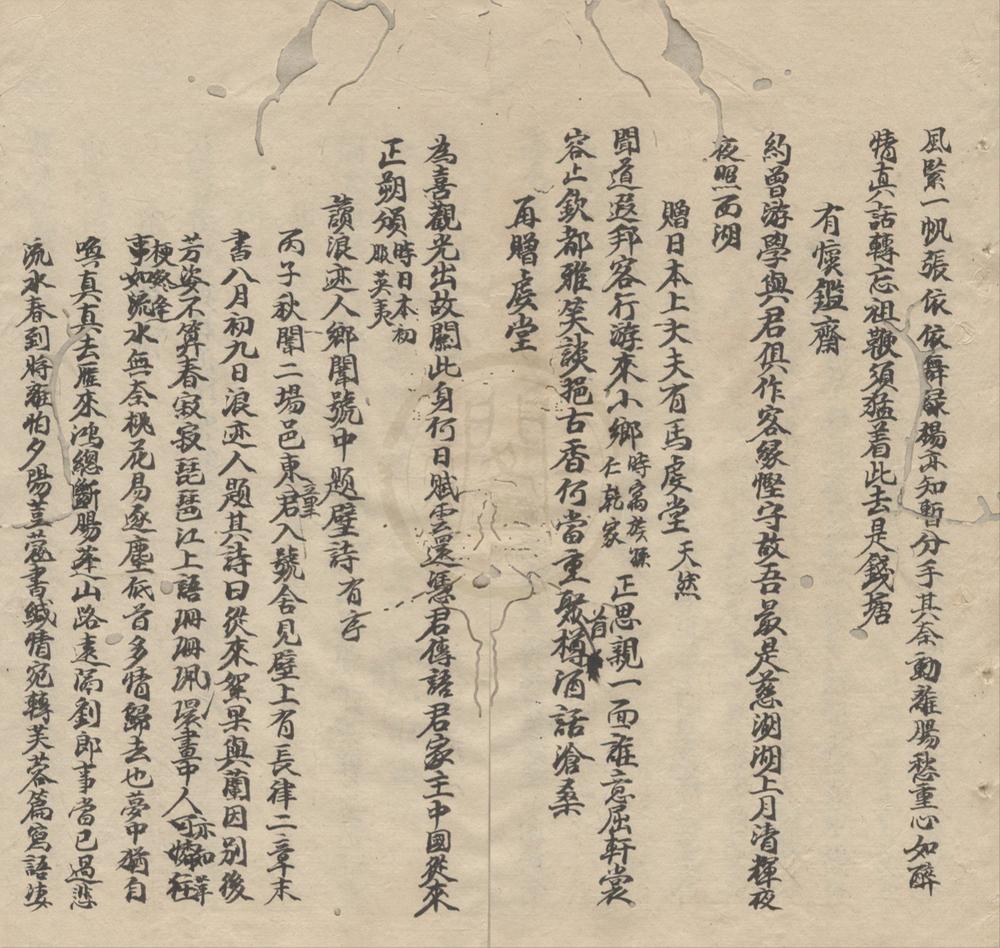 風緊一帆張依依舞綠楊亦知暫分手其奈動離腸愁重心如醉
情真話轉忘祖鞭須猛着此去是錢塘
有懷鑑齋
約曾游學與君俱作客緣慳守故吾最是慈湖湖上月清輝夜
夜照西湖
贈日本上大夫有馬虔堂天然
聞道遐邦客行游來小鄉時寓族縣仁乾家正思親一面難意屈軒裳
容止欽都雅笑談挹古香何當重聚首樽酒話滄桑
再贈虔堂
為喜觀光出故關此身何日賦雲還憑君傳語君家主中國從來
正朔頒時日本初服英夷
讀浪迹人鄉闈號中題壁詩有序
丙子秋闈二場邑東章君入號舍見壁上有長律二章末
書八月初九日浪迹人題其詩曰從來絮果與蘭因別後
芳姿不算春寂寂琵琶江上語珊珊珮環畫中人亦知萍梗終逢
事如流水無奈桃花易逐塵低首多情歸去也夢中猶自
喚真真去雁來鴻總斷腸蓬山路遠隔劉郎事當已過悲
流水春到將離怕夕陽荳蔻書緘情宛轉芙蓉篇寫語淒